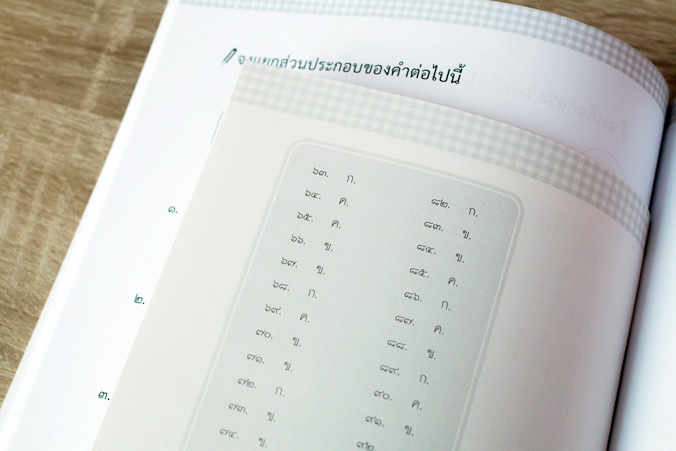 จงแยกส่วนประกอบของคำต่อไปนี้
๑.
๒.
๓.
๖๓. ก.
๖๔. ค.
๖๕. ค.
๖๖. ข.
๖๗. ข.
๖๘. ก.
๖๙. ค.
๗๐. ข.
๗๑. ข.
๗๒. ก.
๗๓. ข.
๗๔. ข.
๘๒. ก.
๘๓. ข.
๘๔. ข.
๘๕. ค.
๘๖. ก.
๘๗. ค.
๘๘. ข.
๘๙. ก.
๙๐. ค.
๙๑. ข.
๙๒.